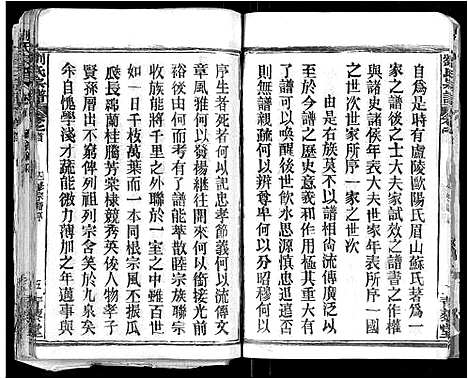 自爲是時有盧陵歐陽氏眉山蘇氏著爲一
家之譜後之士大夫家試效之譜書之作權
與諸史諸侯年表大夫世家年表所序一國
之世次世家所序一
之世次
由是右族莫不以譜相尚流傳廣泛以
至於今譜之歷史意義和作用極其重大有
了譜可以喚醒後世飲水思源慎患追遠
無以無譜親疏何以辨尊卑何以分昭穆何以
序生者死者何以記忠孝節義何以流傳文
章風雅何以發揚繼往開來何以銜接光前
裕後由於何而考有了譜能萃散睦宗族聯
千里之外聯於一室之中雖百世
如一日千枝萬葉而一本同根宗風不振瓜
瓞長綿蘭桂騰芳棠棣競秀英俊人物孝子
賢孫層出不窮俾列祖列宗含笑於九泉矣
余自愧學淺才疏能微力薄加之年邁事與